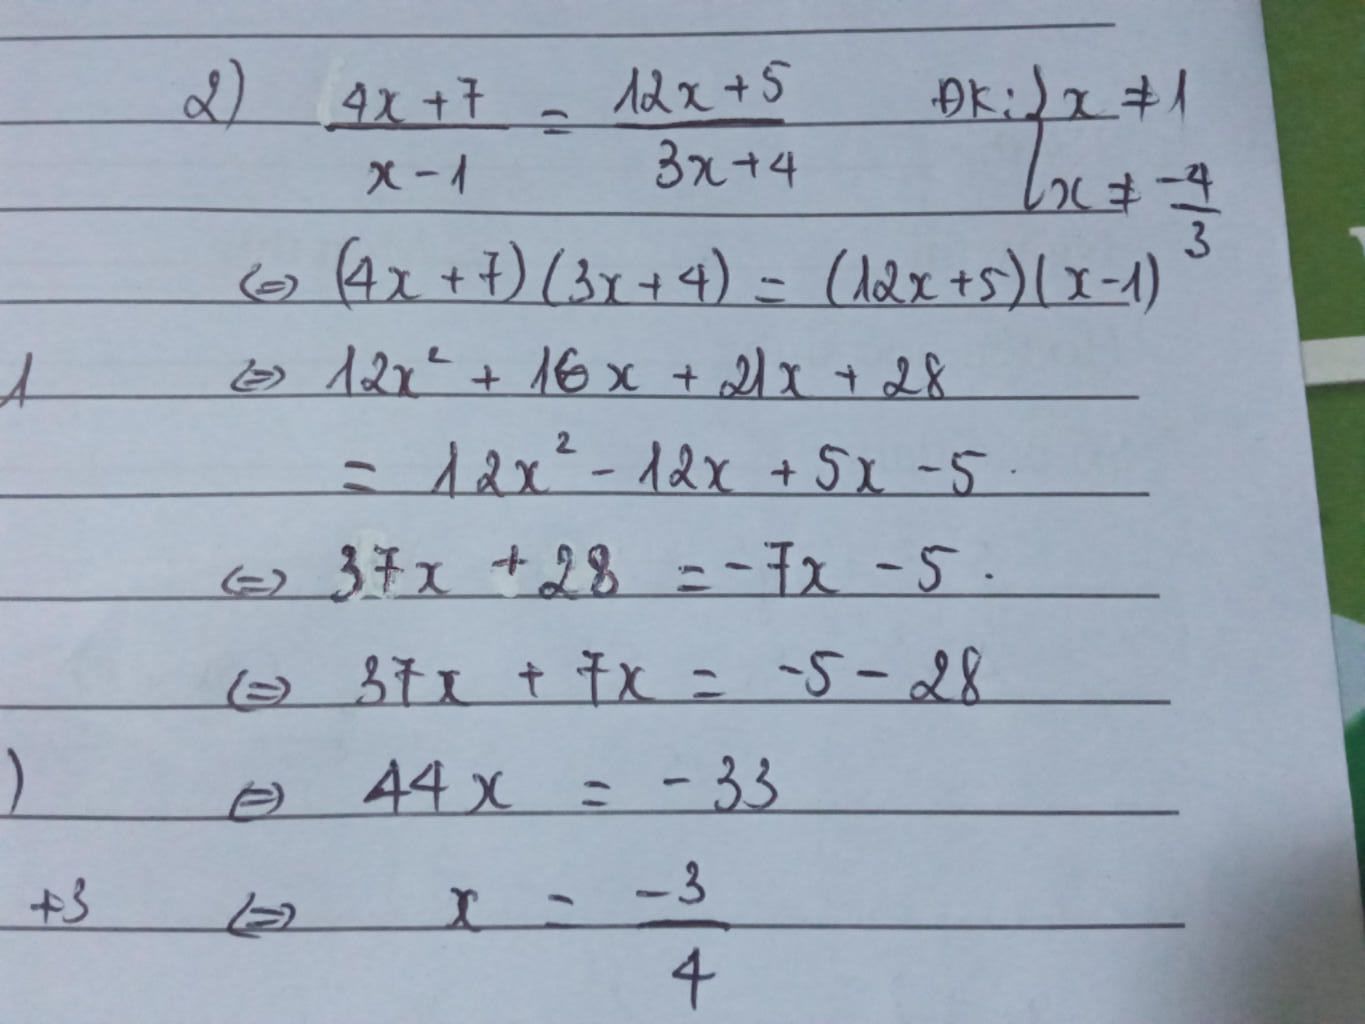 2) (4x+7)/(x-1) = (12x+5)/(3x+4) ĐK: { x ≠ 1
x ≠ -4/3
⇔ (4x+7)(3x+4) = (12x+5)(x-1)
1 ⇔ 12x² + 16x + 21x + 28
= 12x² - 12x + 5x - 5.
⇔ 37x + 28 = -7x - 5.
⇔ 37x + 7x = -5 - 28
) ⇔ 44x = -33
+3 ⇔ x = -3/4